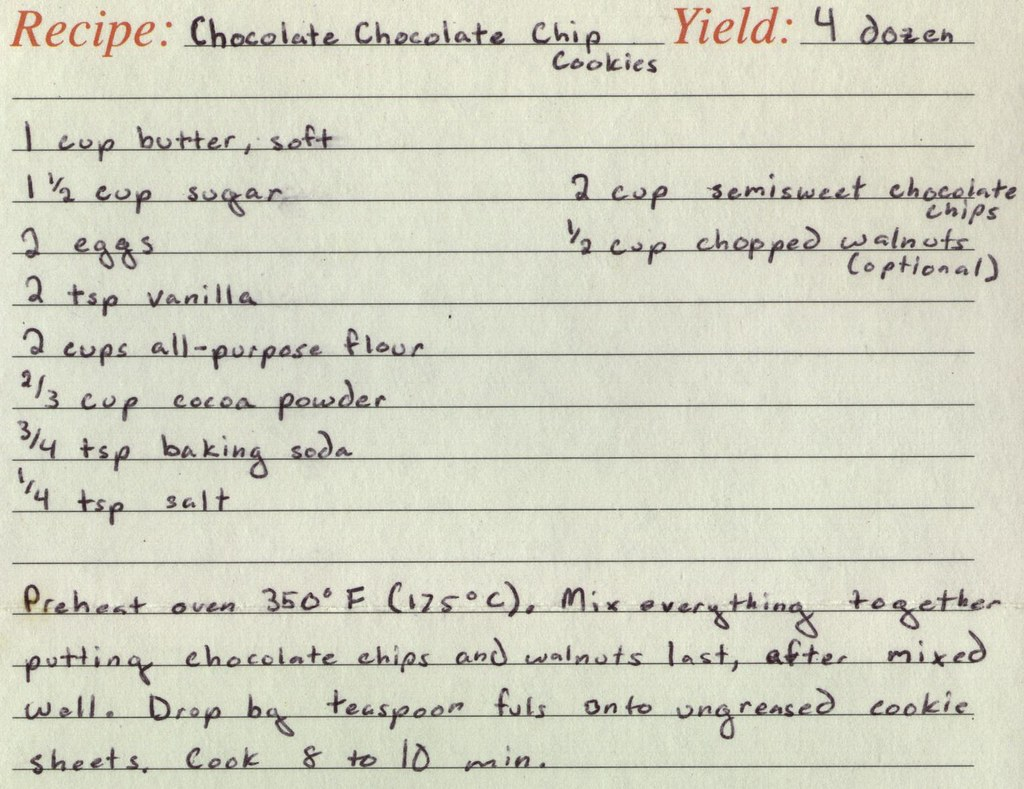 Recipe: Chocolate Chocolate Chip Yield: 4 dozen
Cookies
1 cup butter, soft
1 1/2 cup sugar
2 eggs
2 tsp vanilla
2 cups all-purpose flour
2/3 cup cocoa powder
3/4 tsp baking soda
1/4 tsp salt
2 cup semisweet chocolate
chips
1/2 cup chopped walnuts
(optional)
Preheat oven 350° F (175°C). Mix everything together
putting chocolate chips and walnuts last, after mixed
well. Drop by teaspoon fuls onto ungreased cookie
sheets. Cook 8 to 10 min.